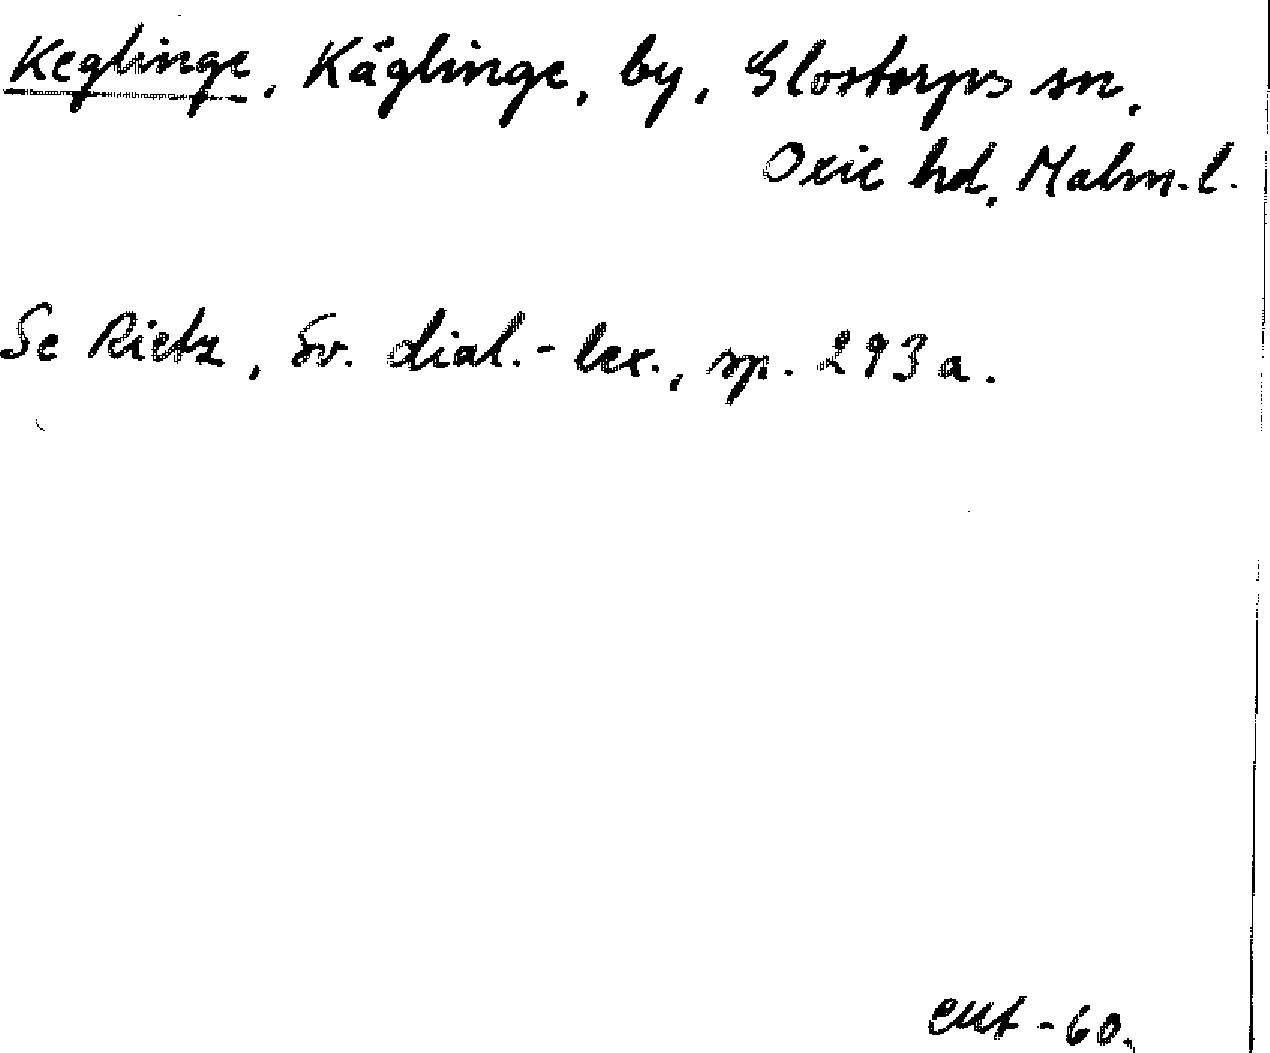 Keglinge, Käglinge, by, Glostorps sn,
Oxie hd, Malm. l.
Se Rietz, Sv. dial.-lex., sp. 293 a.
-60.